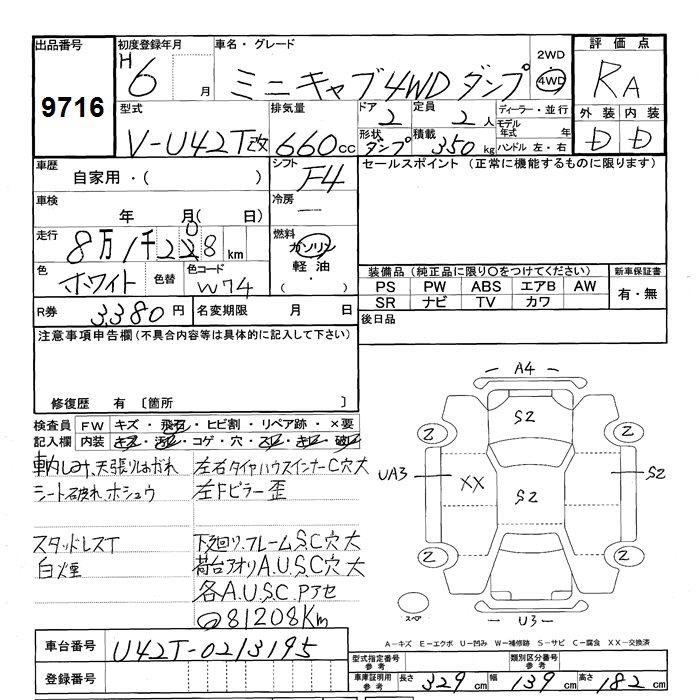 出品番号
9716
初度登録年月
H6 月
車名・グレード
ミニキャブ4WDダンプ
2WD
・
4WD
評価点
RA
外装 内装
D D
型式
V-U42T改
排気量
660cc
ドア
2
定員
2人
形状
ダンプ
積載
350kg
ディーラー・並行
モデル年式 年
ハンドル 左・右
車歴
自家用・( )
シフト
F4
セールスポイント (正常に機能するものに限ります)
車検
年 月( 日)
冷房
―
走行
8万1千208km
燃料
ガソリン
・
軽油
( )
色
ホワイト
色替
色コード
W74
R券
3,380円
名変期限 月 日
装備品 (純正品に限り〇をつけてください)
PS PW ABS エアB AW
SR ナビ TV カワ
新車保証書
有・無
後日品
注意事項申告欄 (不具合内容等は具体的に記入して下さい)
修復歴 有 〔箇所 〕
検査員記入欄
FW キズ・飛石・ヒビ割・リペア跡・×要
内装 キズ・汚レ・コゲ・穴・スレ・キレ・破レ
車内しみ、天張りはがれ
シート破れ、ホシュウ
スタッドレスT
白煙
左右タイヤハウスインナーC穴大
左Fピラー歪
下廻り、フレームS.C穴大
荷台アオリA.U.S.C穴大
各A.U.S.C.Pアセ
81208Km
A4
S2
2 2
UA3 XX S2 S2
2 2
スペア
U3
A-キズ E-エクボ U-凹み W-補修跡 S-サビ C-腐食 XX-交換済
車台番号
U42T-0213195
登録番号
型式指定番号 参考
類別区分番号 参考
車庫証明用 参考
長さ 329cm 幅 139cm 高さ 182cm